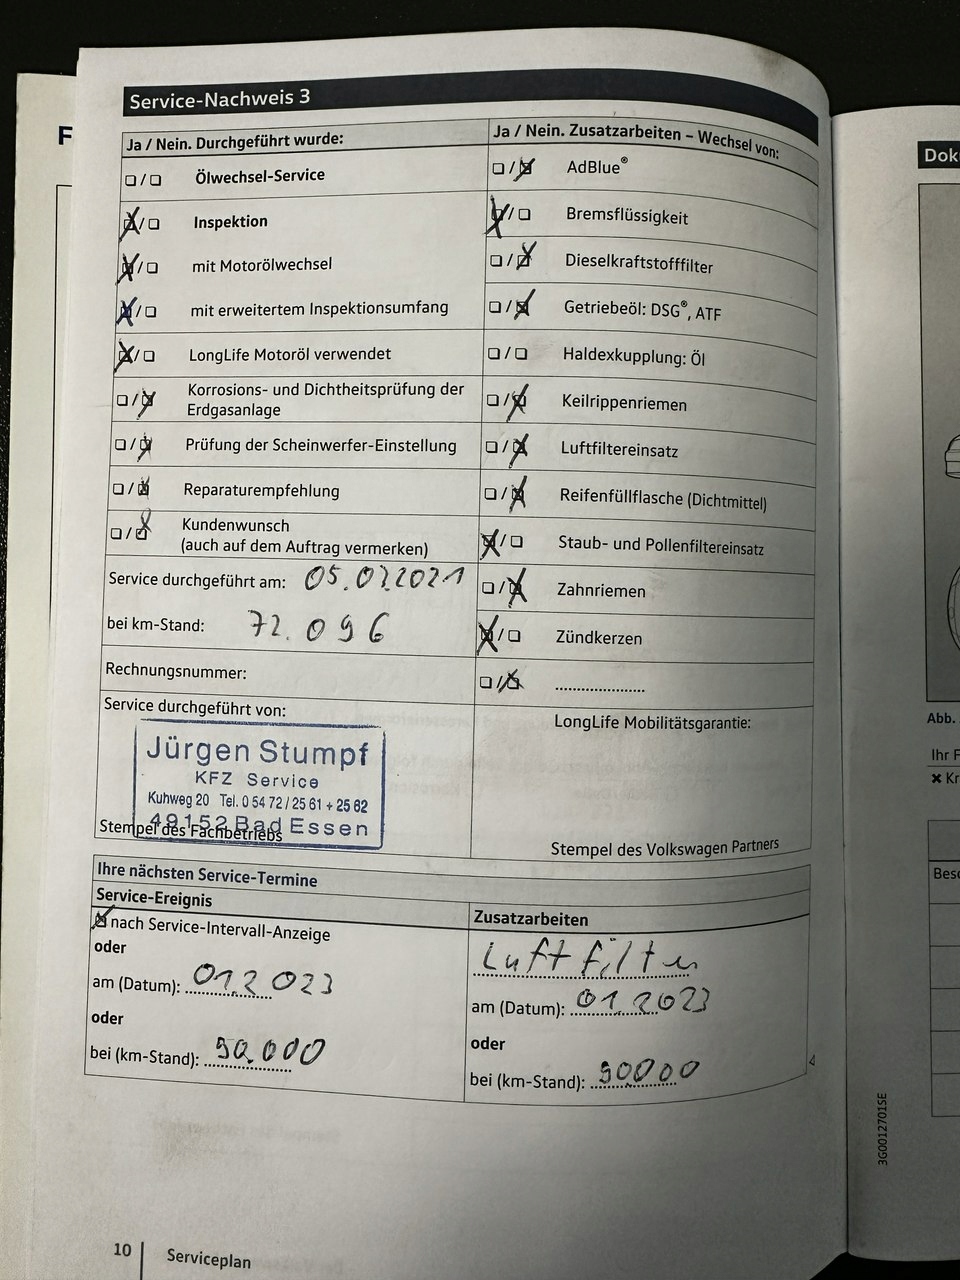 Service-Nachweis 3
Ja / Nein. Durchgeführt wurde:
Ölwechsel-Service
Inspektion
mit Motorölwechsel
mit erweitertem Inspektionsumfang
LongLife Motoröl verwendet
Korrosions- und Dichtheitsprüfung der
Erdgasanlage
Prüfung der Scheinwerfer-Einstellung
Reparaturempfehlung
Kundenwunsch
(auch auf dem Auftrag vermerken)
Service durchgeführt am: 05.07.2021
bei km-Stand: 72.096
Rechnungsnummer:
Service durchgeführt von:
Jürgen Stumpf
KFZ Service
Kuhweg 20 Tel. 0 54 72 / 25 61 + 25 62
49152 Bad Essen
Stempel des Fachbetriebs
Ja / Nein. Zusatzarbeiten – Wechsel von:
AdBlue®
Bremsflüssigkeit
Dieselkraftstofffilter
Getriebeöl: DSG®, ATF
Haldexkupplung: Öl
Keilrippenriemen
Luftfiltereinsatz
Reifenfüllflasche (Dichtmittel)
Staub- und Pollenfiltereinsatz
Zahnriemen
Zündkerzen
LongLife Mobilitätsgarantie:
Stempel des Volkswagen Partners
Ihre nächsten Service-Termine
Service-Ereignis
nach Service-Intervall-Anzeige
oder
am (Datum): 01.2023
oder
bei (km-Stand): 90.000
Zusatzarbeiten
Luftfilter
am (Datum): 01.2023
oder
bei (km-Stand): 90000
10
Serviceplan
3G0012701SE
F
Abb.
Ihr F